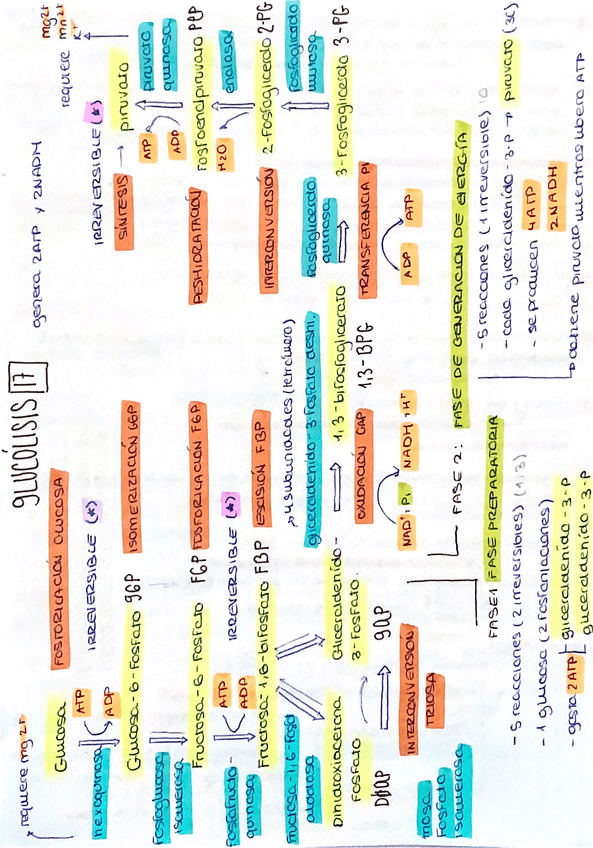 GLUCÓLISIS 17
* requiere mg2+
Glucosa
FOSFORILACIÓN GLUCOSA
hexoquinasa
ATP
ADP
IRREVERSIBLE (*)
Glucosa-6-Fosfato G6P
ISOMERIZACIÓN G6P
Fosfoglucosa
isomerasa
Fructosa-6-Fosfato F6P
FOSFORILACIÓN F6P
fosfofructo-
quinasa
ATP
ADP
IRREVERSIBLE (*)
Fructosa-1,6-bifosfato FBP
ESCISIÓN FBP
fructosa-1,6-fosf
aldolasa
Dihidroxiacetona
fosfato
DHAP
Gliceraldehído-
3-fosfato.
GAP
INTERCONVERSIÓN
TRIOSA
triosa
Fosfato
Isomerasa
4 subunidades (tetrámero)
gliceraldehído-3-fosfato deshi.
1,3-bifosfoglicerato
1,3-BPG
OXIDACIÓN GAP
NAD+, Pi
NADH + H+
fosfoglicerato
quinasa
TRANSFERENCIA Pi
ADP
ATP
3-Fosfoglicerato 3-PG
fosfoglicerato
mutasa
INTERCONVERSIÓN
2-Fosfoglicerato 2-PG
enolasa
H2O
DESHIDRATACIÓN
Fosfoenolpiruvato PEP
piruvato
quinasa
ATP
ADP
SÍNTESIS → piruvato
IRREVERSIBLE (*)
requiere
mg2+
mn2+
K+
genera 2ATP y 2NADH
FASE 1 FASE PREPARATORIA
- 5 reacciones (2 irreversibles) (1,3)
- 1 glucosa (2 fosforilaciones)
- gasta 2ATP
gliceraldehído-3-P
gliceraldehído-3-P
FASE 2: FASE DE GENERACIÓN DE ENERGÍA
- 5 reacciones (1 irreversible) 10
- cada gliceraldehído-3-P → piruvato (3C)
- se producen 4ATP
2NADH
obtiene piruvato mientras libera ATP